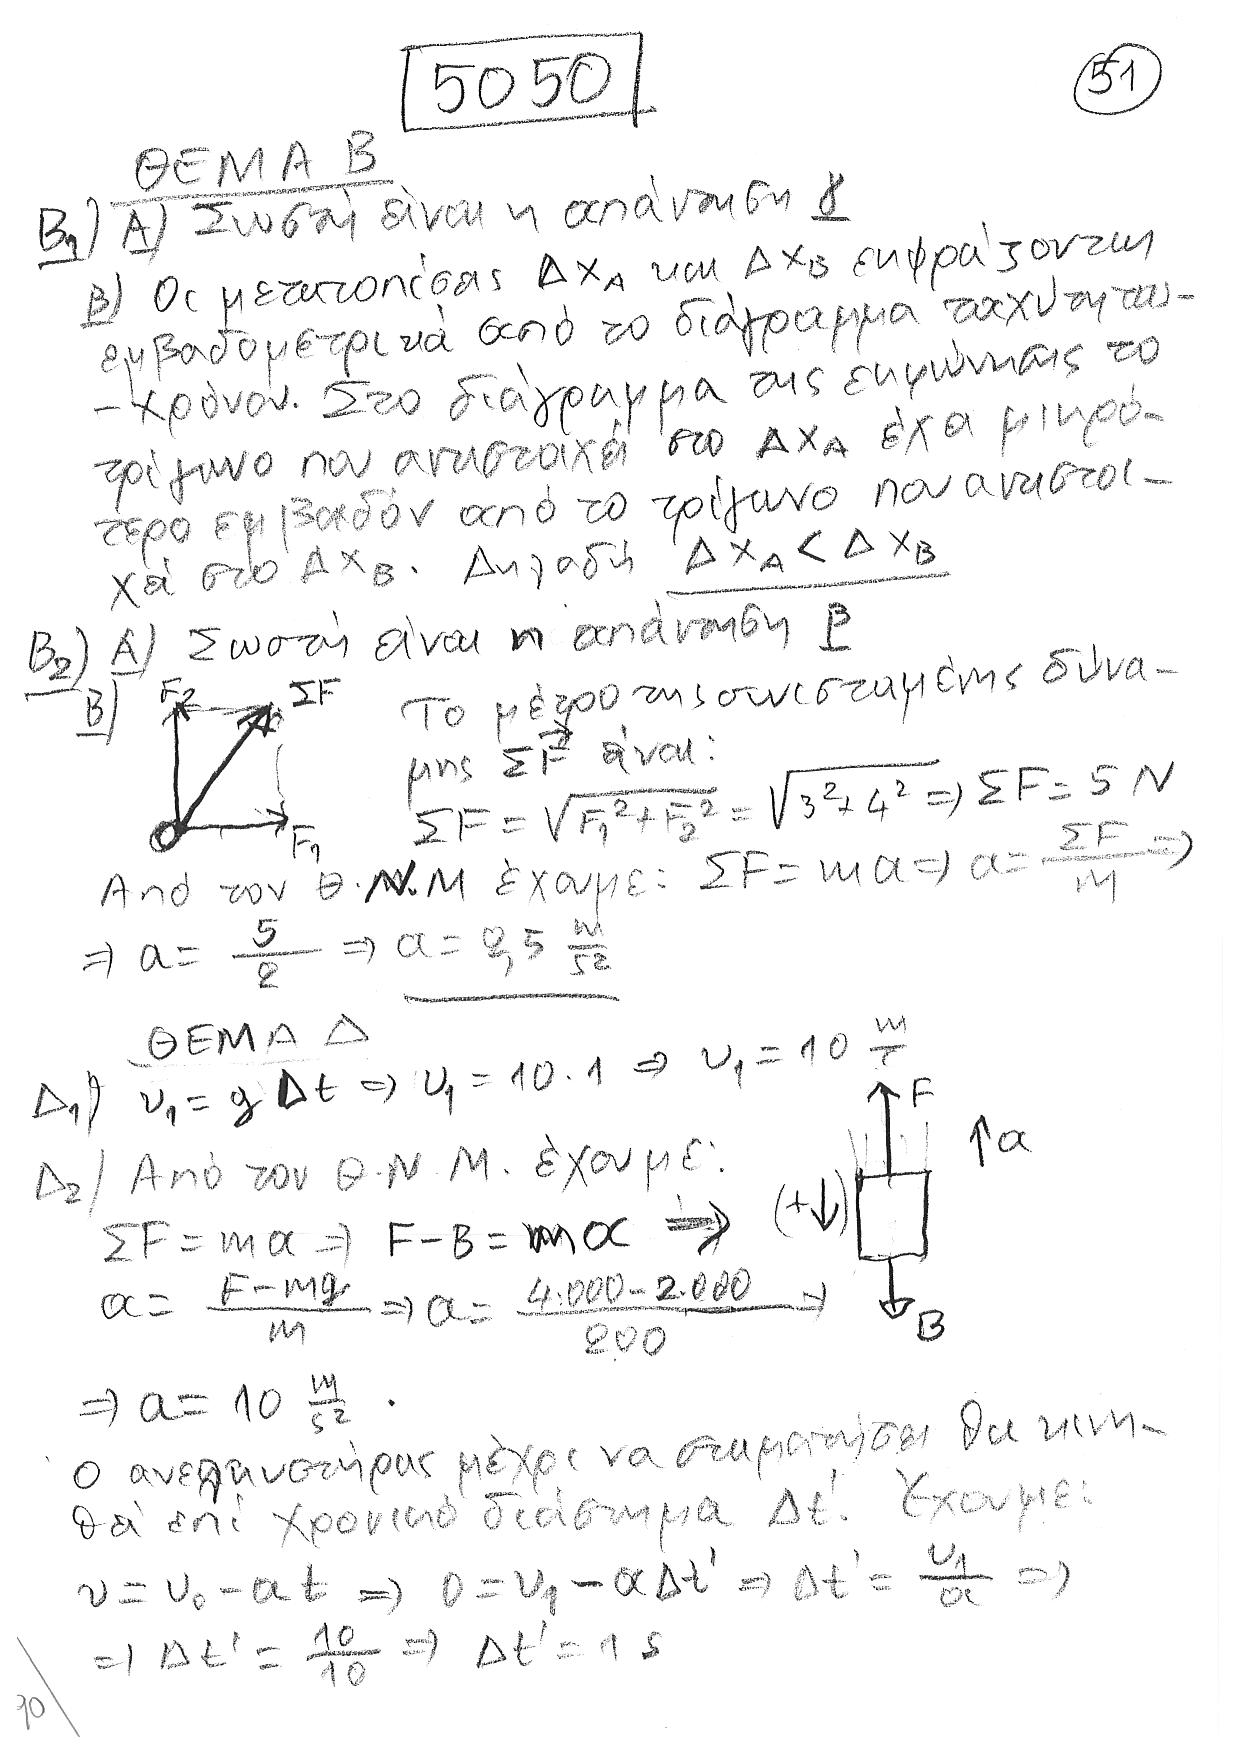 5050
51
ΘΕΜΑ Β
Β1) Α) Σωστή είναι η απάντηση γ
Β) Οι μετατοπίσεις ΔxA και ΔxB εκφράζονται
εμβαδομετρικά από το διάγραμμα ταχύτητας-
-χρόνου. Στο διάγραμμα της εκφώνησης το
τρίγωνο που αντιστοιχεί στο ΔxA έχει μικρό-
τερο εμβαδόν από το τρίγωνο που αντιστοι-
χεί στο ΔxB. Δηλαδή ΔxA < ΔxB
Β2) Α) Σωστή είναι η απάντηση β
Β) F2 ΣF F1
Το μέτρο της συνισταμένης δύνα-
μης ΣF είναι:
ΣF = √F1²+F2² = √3²+4² => ΣF = 5 N
Από τον Θ.Ν.Μ έχουμε: ΣF = mα => α = ΣF/m =>
=> α = 5/2 => α = 2,5 m/s²
ΘΕΜΑ Δ
Δ1) υ1 = gΔt => υ1 = 10·1 => υ1 = 10 m/s
F
↑α
(+↓)
B
Δ2) Από τον Θ.Ν.Μ. έχουμε:
ΣF = mα => F-B = mα =>
α = F-mg/m => α = 4.000-2.000/200 =>
=> α = 10 m/s².
Ο ανελκυστήρας μέχρι να σταματήσει θα κινη-
θεί επί χρονικό διάστημα Δt'. Έχουμε:
υ = υ0 - αt => 0 = υ1 - αΔt' => Δt' = υ1/α =>
=> Δt' = 10/10 => Δt' = 1 s